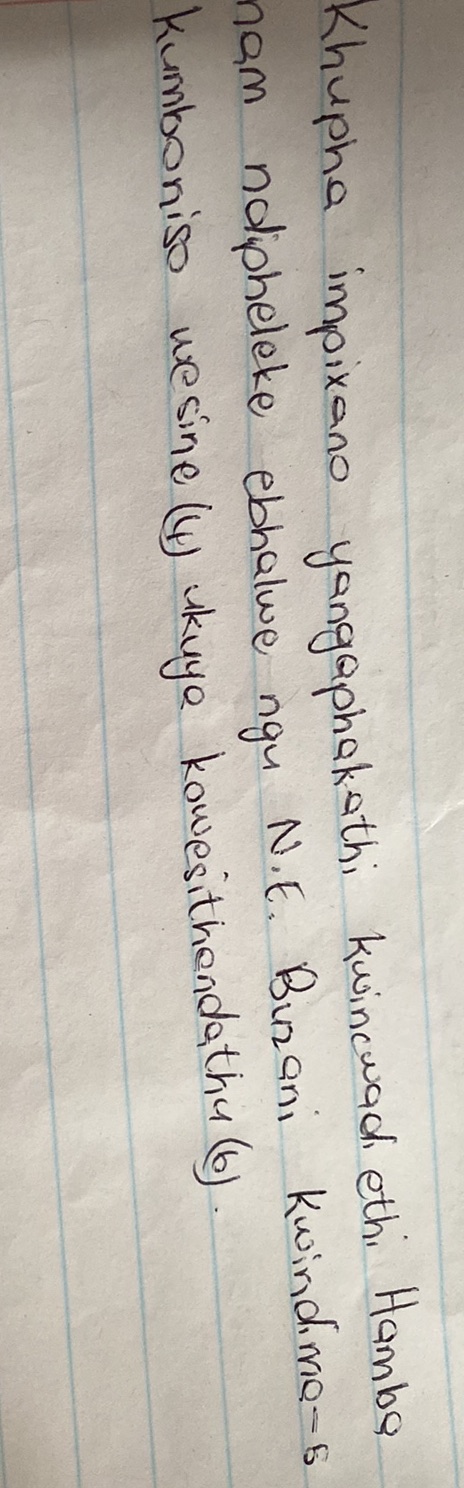 Khupha impixano yangaphakathi kwincwadi ethi Hamba
nam ndipheleke ebhalwe ngu N.E. Buzani kwindima-5
kumboniso wesine (4) ukuya kowesithandathu (6).